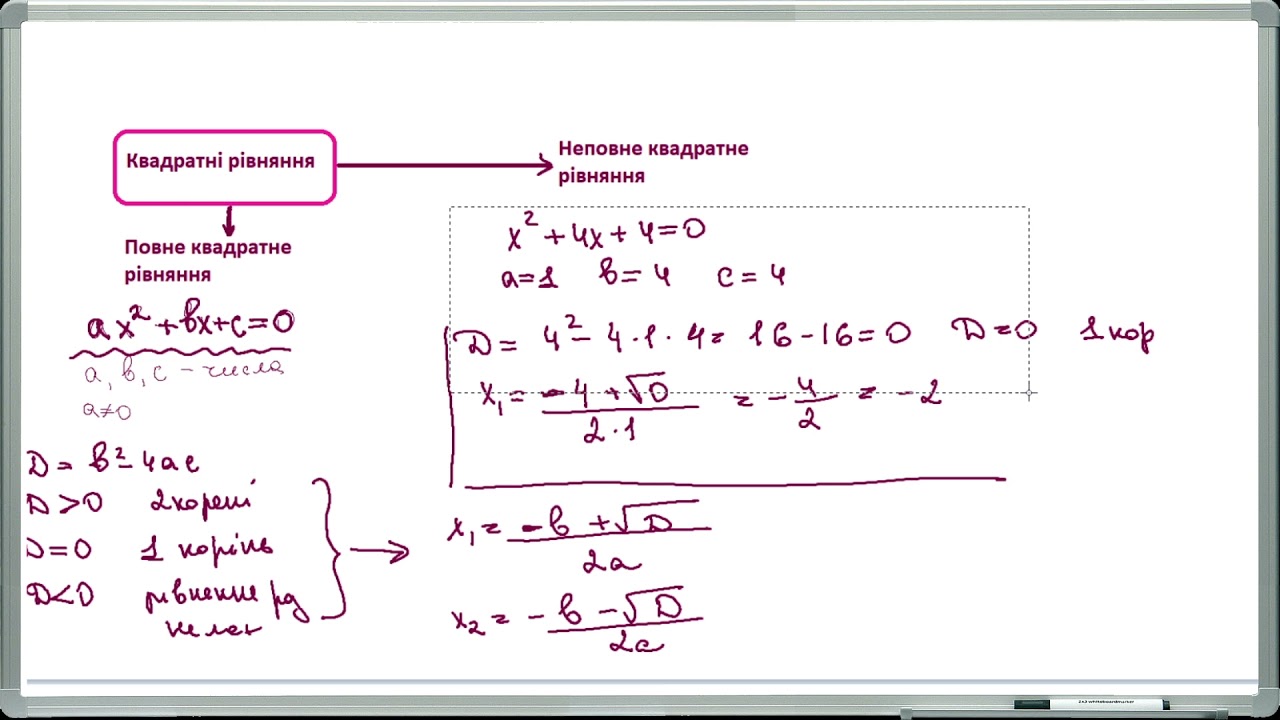 Квадратні рівняння
Неповне квадратне
рівняння
Повне квадратне
рівняння
ax² + bx + c = 0
a, b, c – числа
a ≠ 0
D = b² – 4ac
D > 0 2 корені
D = 0 1 корінь
D < 0 рівняння
не має
x² + 4x + 4 = 0
a = 1 b = 4 c = 4
D = 4² – 4 · 1 · 4 = 16 – 16 = 0 D = 0 1 кор
x₁ = (–4 + √0) / (2 · 1) = –4/2 = –2
x₁ = (–b + √D) / 2a
x₂ = (–b – √D) / 2a